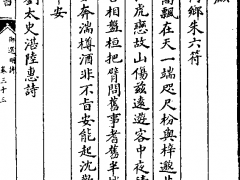 鄉朱六符
飄在天一端咫尺枌與梓邈
虎戀故山傷茲遠遊客中夜
相盤桓把臂問舊事耆舊半
奔湍樽酒非不旨安能起沈
太史涪陵惠詩
御選明詩 卷三十三